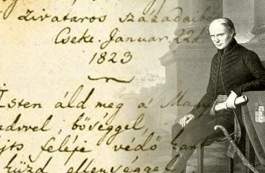 zivataros századaibó
Cseke. Január 22d
1823
Isten áld meg a Magy
edvvel, bőséggel
jts feléje védő kar
küzd ellenséggel